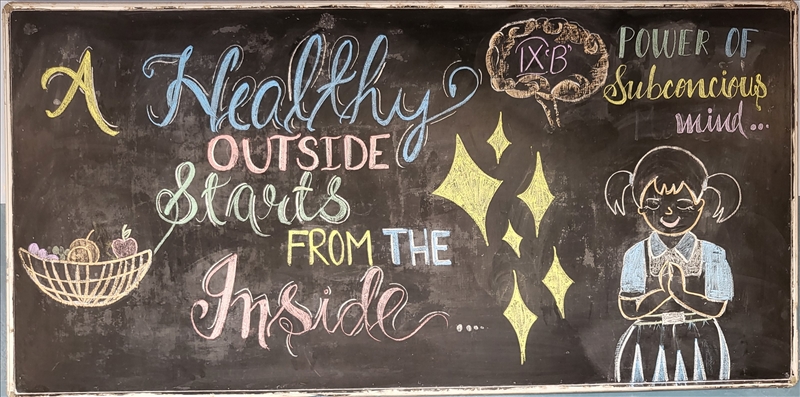 A Healthy
OUTSIDE
Starts
FROM THE
Inside....
IX'B'
POWER OF
Subconcious
mind...